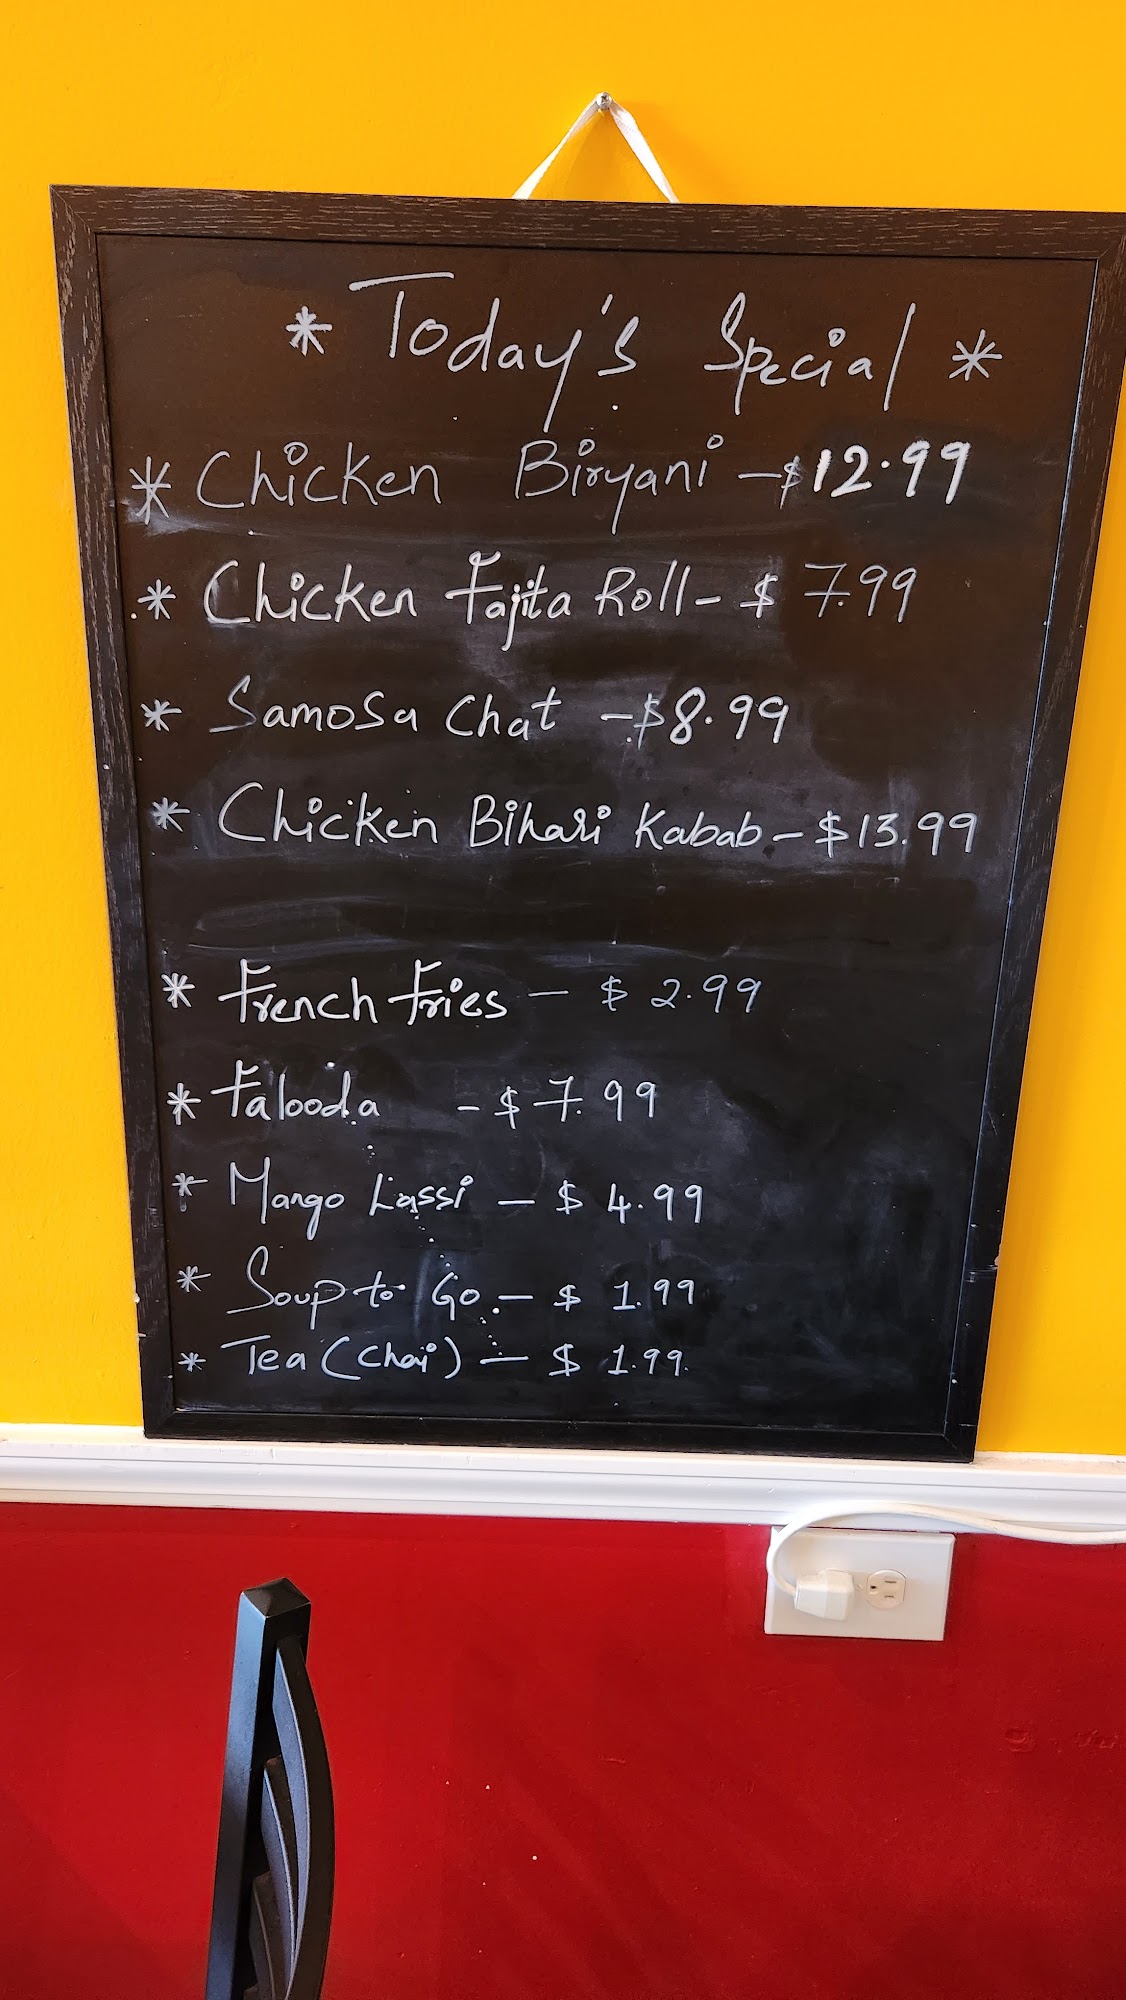 * Today's Special *
* Chicken Biryani - $12.99
* Chicken Fajita Roll - $ 7.99
* Samosa Chat - $8.99
* Chicken Bihari Kabab - $13.99
* French Fries - $ 2.99
* Falooda - $ 7.99
* Mango Lassi - $ 4.99
* Soup to Go - $ 1.99
* Tea (Chai) - $ 1.99